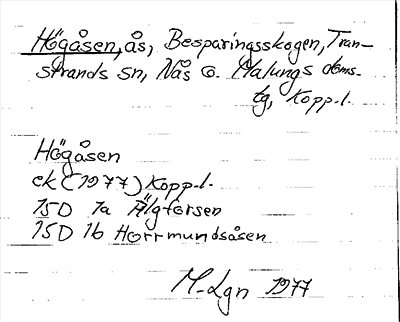 Högåsen, ås, Besparingsskogen, Tran-
strands sn, Nås o. Malungs doms-
tg, Kopp.l.
Högåsen
ek (1977) Kopp.l.
15D 1a Älgforsen
15D 1b Horrmundsåsen
M-Lgn 1977